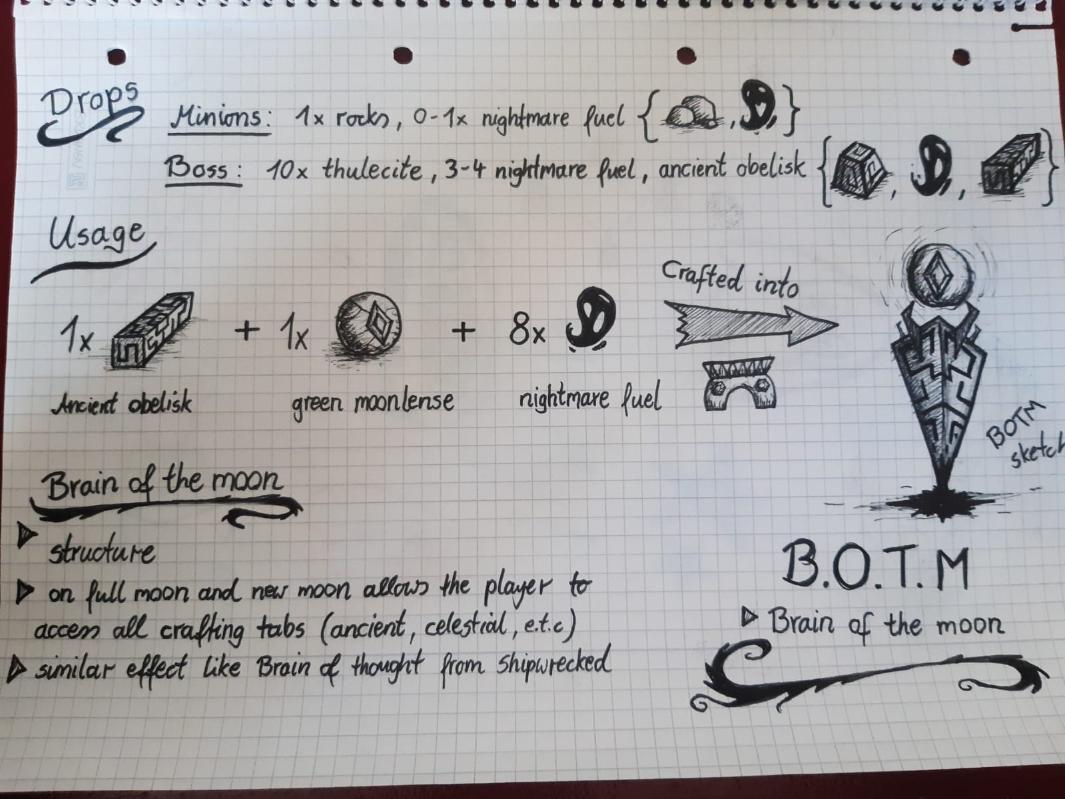 Drops
Minions: 1x rocks, 0-1x nightmare fuel { , }
Boss: 10x thulecite, 3-4 nightmare fuel, ancient obelisk { , , }
Usage
Crafted into
1x + 1x + 8x
Ancient obelisk green moonlense nightmare fuel
BOTM
sketch
Brain of the moon
structure
on full moon and new moon allows the player to
access all crafting tabs (ancient, celestial, e.t.c)
similar effect like Brain of thought from Shipwrecked
B.O.T.M
Brain of the moon